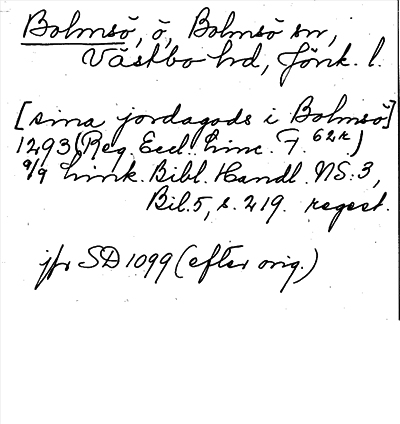 Bolmsö, ö, Bolmsö sn,
Västbo hd, Jönk. l.
[sina jordagods i Bolmsö]
1293 (Reg. Eccl. Linc. F. 62r)
9/9 Link. Bibl. Handl. NS: 3,
Bil. 5, s. 219. regest.
jfr SD 1099 (efter orig.)